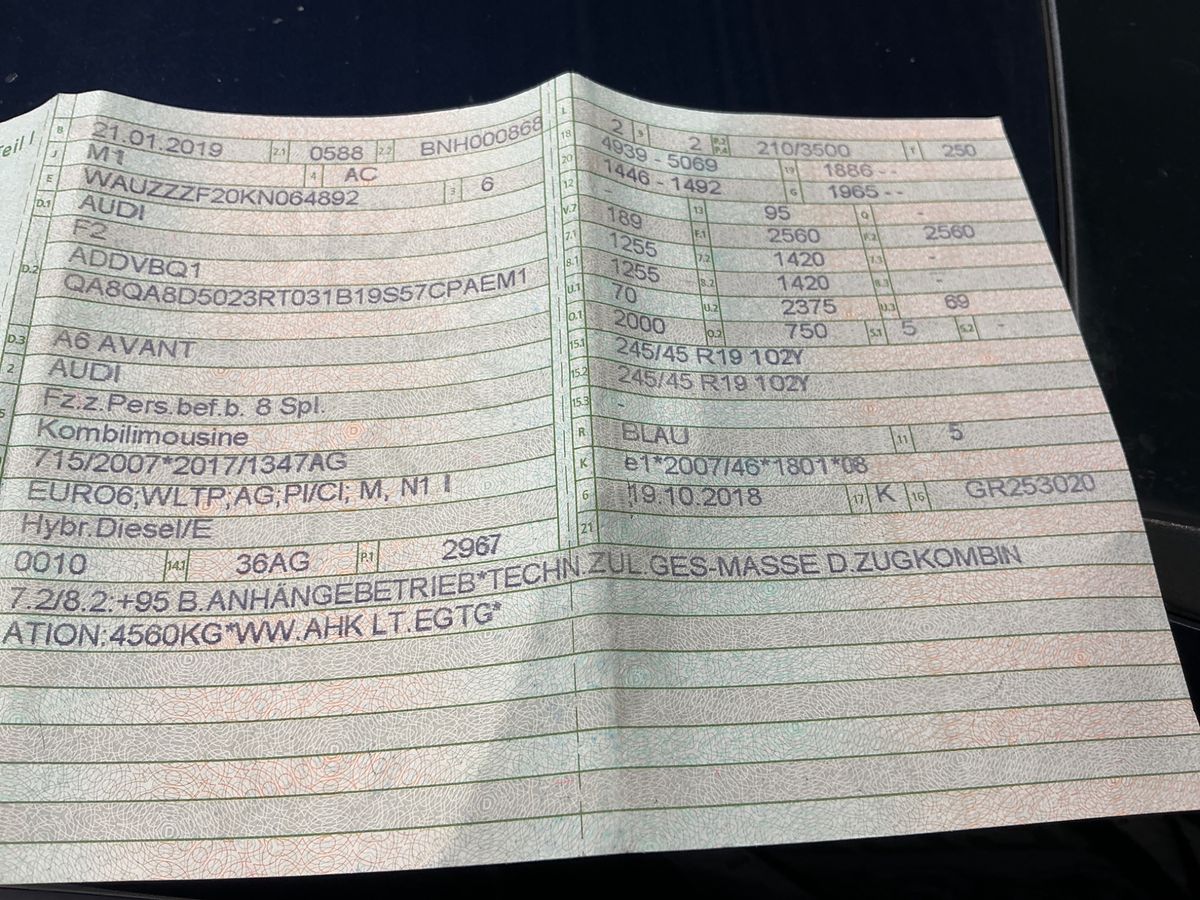 Teil I
B 21.01.2019 2.1 0588 2.2 BNH000868
J M1 4 AC
E WAUZZZF20KN064892 3 6
D.1 AUDI
F2
D.2 ADDVBQ1
QA8QA8D5023RT031B19S57CPAEM1
D.3 A6 AVANT
2 AUDI
5 Fz.z.Pers.bef.b. 8 Spl.
Kombilimousine
715/2007*2017/1347AG
EURO6;WLTP;AG;PI/CI; M, N1 I
Hybr.Diesel/E
0010 14.1 36AG P.1 2967
L 2 9 2 P.2 P.4 210/3500 T 250
18 4939 - 5069 19 1886 - -
20 1446 - 1492 G 1965 - -
12 - 13 95 Q -
V.7 189 F.1 2560 F.2 2560
7.1 1255 7.2 1420 7.3 -
8.1 1255 8.2 1420 8.3 -
U.1 70 U.2 2375 U.3 69
O.1 2000 O.2 750 S.1 5 S.2 -
15.1 245/45 R19 102Y
15.2 245/45 R19 102Y
15.3 -
R BLAU 11 5
K e1*2007/46*1801*08
6 19.10.2018 17 K 16 GR253020
21
7.2/8.2:+95 B.ANHÄNGEBETRIEB*TECHN.ZUL.GES-MASSE D.ZUGKOMBIN
ATION:4560KG*WW.AHK LT.EGTG*